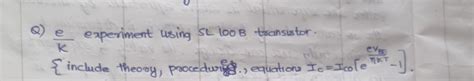 Q) e/k experiment using SL 100 B transistor.
{ include theory, procedures., equations Ic = Ico[e^(eVBE/ηKT) -1].